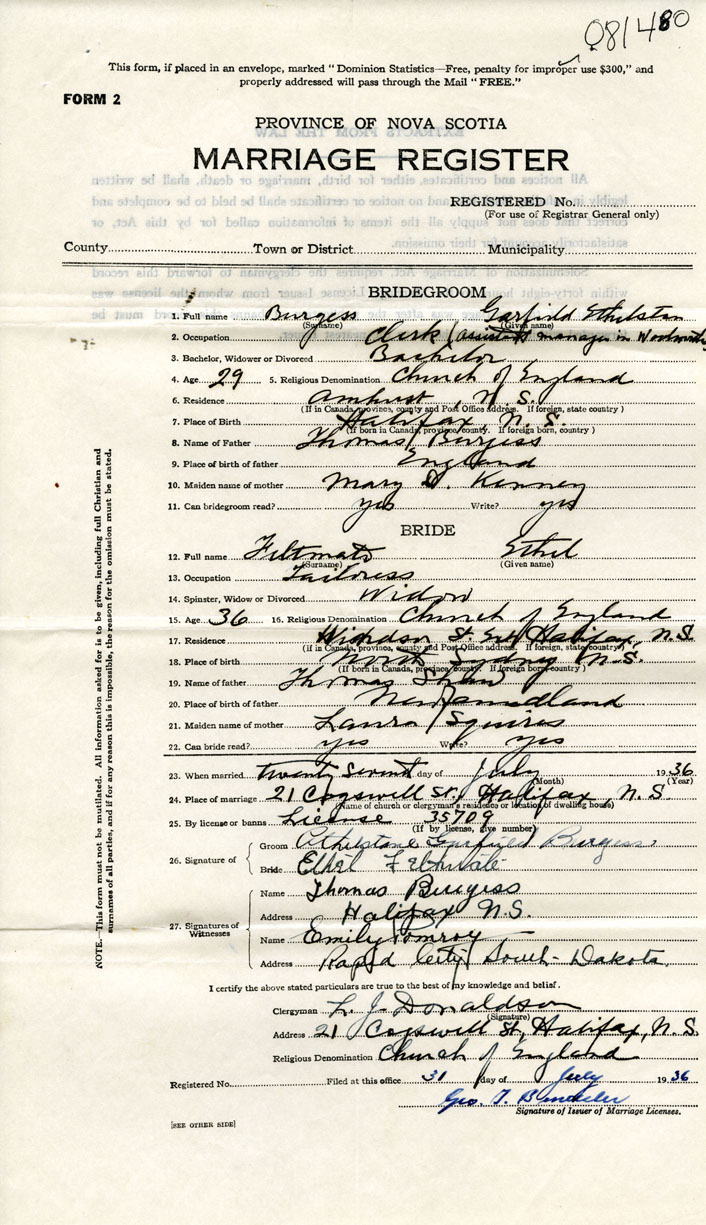 081480
This form, if placed in an envelope, marked "Dominion Statistics—Free, penalty for improper use $300," and
properly addressed will pass through the Mail "FREE."
FORM 2
PROVINCE OF NOVA SCOTIA
MARRIAGE REGISTER
REGISTERED No.
(For use of Registrar General only)
County Town or District Municipality
BRIDEGROOM
1. Full name Burgess Garfield Ethelstan
(Surname) (Given name)
2. Occupation Clerk (assistant manager in Woolworths
3. Bachelor, Widower or Divorced Bachelor
4. Age 29 5. Religious Denomination Church of England
6. Residence Amherst, N.S.
(If in Canada, province, county and Post Office address. If foreign, state country)
7. Place of Birth Halifax N.S.
(If born in Canada, province, county. If foreign born, country)
8. Name of Father Thomas Burgess
9. Place of birth of father England
10. Maiden name of mother Mary Kenney
11. Can bridegroom read? yes Write? yes
BRIDE
12. Full name Ethel
(Surname) (Given name)
13. Occupation Tailoress
14. Spinster, Widow or Divorced Widow
15. Age 36 16. Religious Denomination Church of England
17. Residence Windsor St. Halifax, N.S.
(If in Canada, province, county and Post Office address. If foreign, state country)
18. Place of birth North Sydney N.S.
(If born in Canada, province, county. If foreign born, country)
19. Name of father Thomas Shaw
20. Place of birth of father Newfoundland
21. Maiden name of mother Laura Squires
22. Can bride read? yes Write? yes
23. When married twenty seventh day of July 1936
(Month) (Year)
24. Place of marriage 21 Cogswell St., Halifax, N.S.
(Name of church or clergyman's residence or location of dwelling house)
25. By license or banns License 35709
(If by license, give number)
26. Signature of
Groom Athelstane Garfield Burgess
Bride Ethel
27. Signatures of Witnesses
Name Thomas Burgess
Address Halifax N.S.
Name Emily Pomroy
Address Rapid City South-Dakota
I certify the above stated particulars are true to the best of my knowledge and belief.
Clergyman L. J. Donaldson
(Signature)
Address 21 Cogswell St., Halifax, N.S.
Religious Denomination Church of England
Registered No. Filed at this office 31 day of July 1936
Geo. T.
Signature of Issuer of Marriage Licenses.
[SEE OTHER SIDE]
NOTE. This form must not be mutilated. All information asked for is to be given, including full Christian and
surnames of all parties, and if for any reason this is impossible, the reason for the omission must be stated.